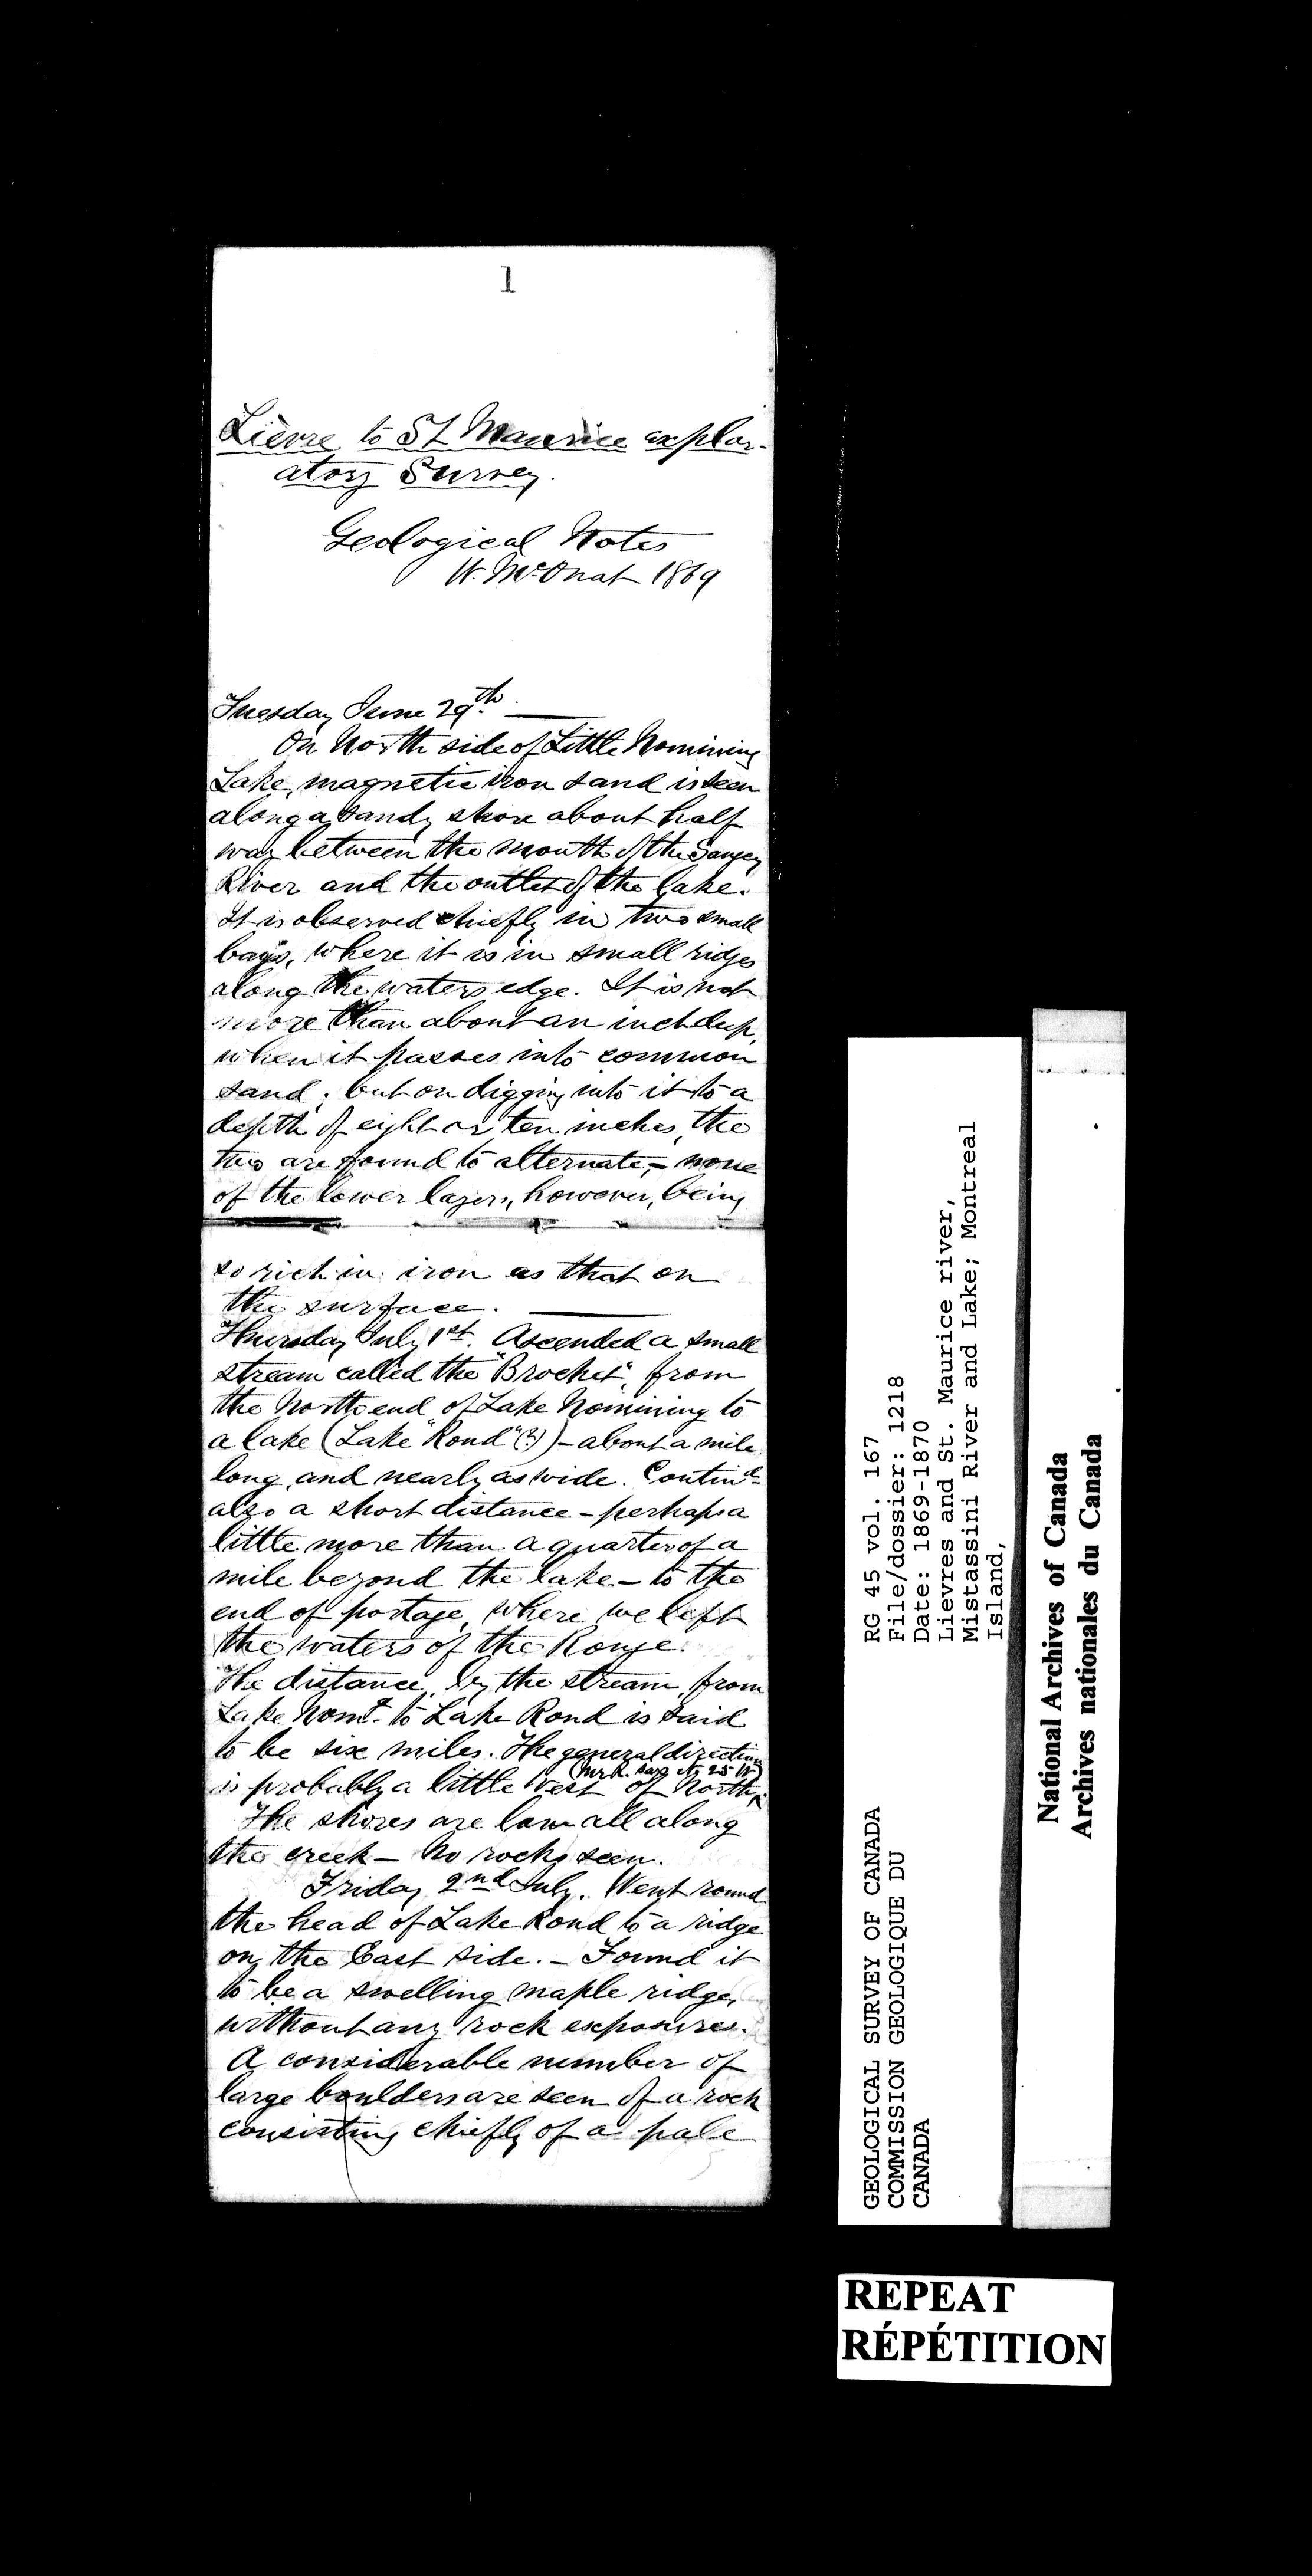 1
Lièvre to St Maurice explor-
atory Survey.
Geological Notes
W. McOuat 1869
Tuesday June 29th.
On North side of Little Nomining
Lake, magnetic iron sand is seen
along a sandy shore about half
way between the mouth of the
River and the outlet of the lake.
It is observed chiefly in two small
bays, where it is in small ridges
along the waters edge. It is not
more than about an inch deep,
when it passes into common
sand; but on digging into it to a
depth of eight or ten inches, the
two are found to alternate, - none
of the lower layers, however, being
so rich in iron as that on
the surface.
Thursday July 1st. Ascended a small
stream called the "Brochet", from
the North end of Lake Nomining to
a lake (Lake "Rond" (?)) - about a mile
long, and nearly as wide. Contind
also a short distance - perhaps a
little more than a quarter of a
mile beyond the lake - to the
end of portage, where we left
the waters of the Rouge.
The distance, by the stream, from
Lake Nomg. to Lake Rond is said
to be six miles. The general direction
(Mr R. says N 25 W)
is probably a little West of North
The shores are low all along
the creek - No rocks seen.
Friday 2nd July. Went round
the head of Lake Rond to a ridge
on the East side. - Found it
to be a swelling maple ridge,
without any rock exposures.
A considerable number of
large boulders are seen of a rock
consisting chiefly of a pale
RG 45 vol. 167
File/dossier: 1218
Date: 1869-1870
Lievres and St. Maurice river,
Mistassini River and Lake; Montreal
Island,
GEOLOGICAL SURVEY OF CANADA
COMMISSION GEOLOGIQUE DU
CANADA
National Archives of Canada
Archives nationales du Canada
REPEAT
RÉPÉTITION